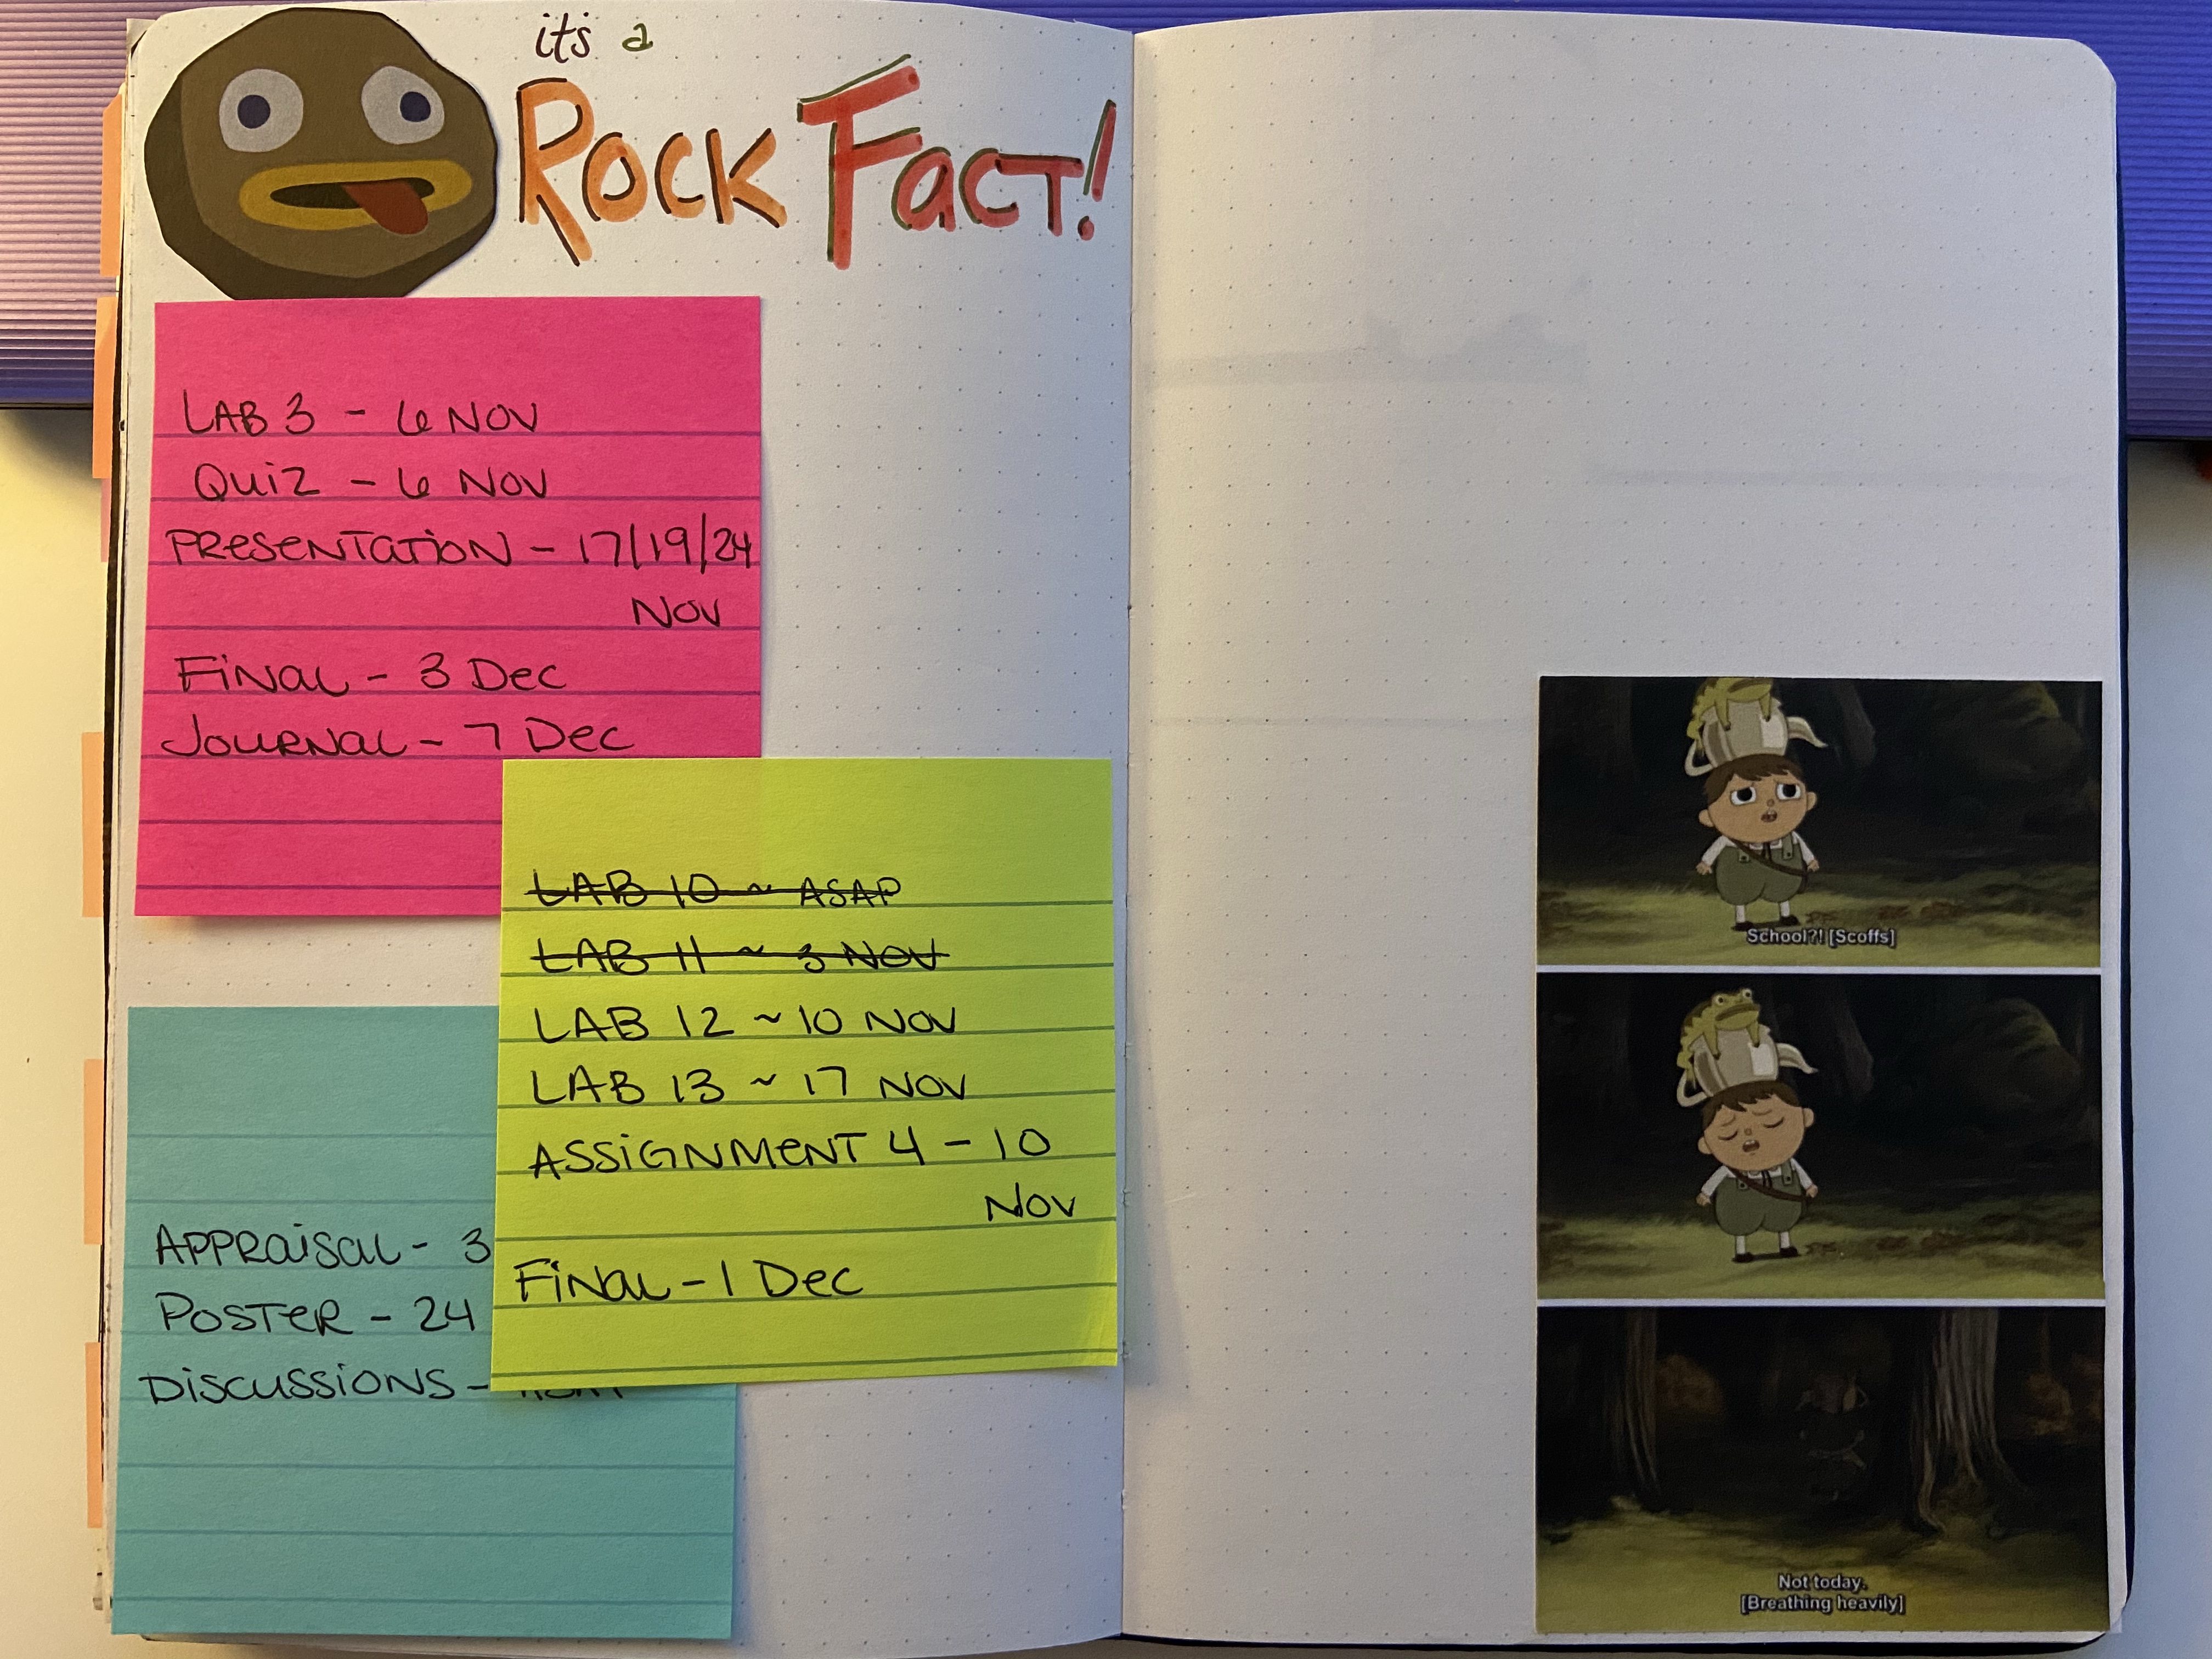 it's a
Rock Fact!
LAB 3 - 6 NOV
QUIZ - 6 NOV
PRESENTATION - 17/19/24
NOV
FINAL - 3 Dec
JOURNAL - 7 Dec
LAB 10 ~ ASAP
LAB 11 ~ 3 NOV
LAB 12 ~ 10 NOV
LAB 13 ~ 17 NOV
ASSIGNMENT 4 - 10
NOV
FINAL - 1 Dec
APPRAISAL - 3
POSTER - 24
DISCUSSIONS -
School?! [Scoffs]
Not today.
[Breathing heavily]